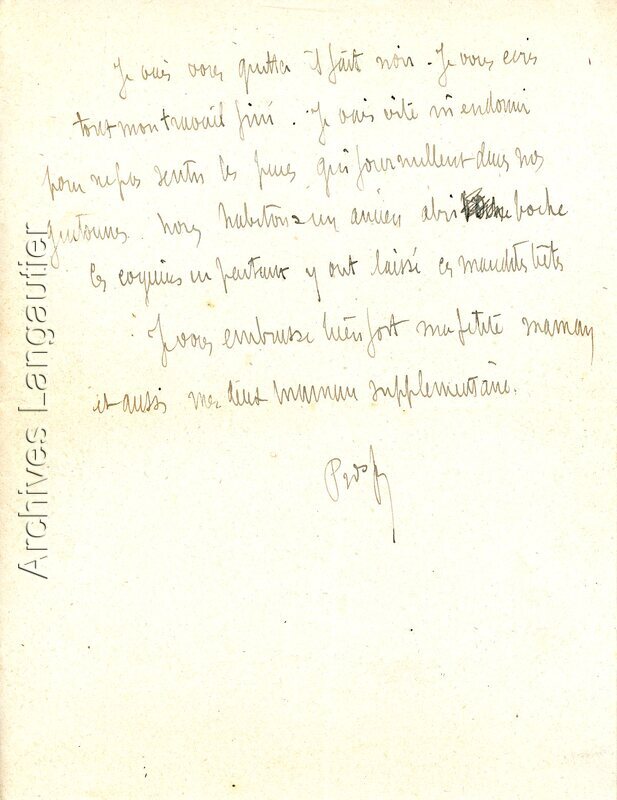 Je vais vous quitter il fait noir. Je vous ecris
tout mon travail fini. Je vais vite m'endormir
pour ne pas sentir les puces qui fourmillent dans nos
guitounes. Nous habitons un ancien abri boche
les coquins en partant y ont laissé ces maudites bêtes
Je vous embrasse bien fort ma petite maman
et aussi mes deux maman supplementaire.
Archives Langautier